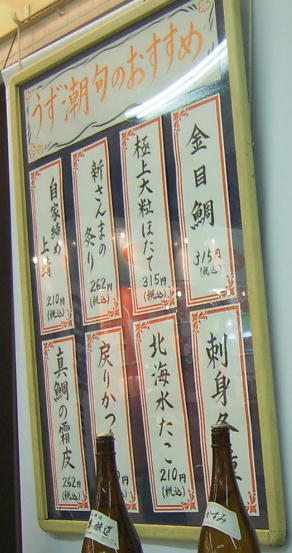 うず潮旬のおすすめ
金目鯛
315円
(税込)
極上大粒ほたて
315円
(税込)
新さんまの
炙り
262円
(税込)
自家締め
上鯖
210円
(税込)
刺身
北海水たこ
210円
(税込)
戻りかつ
真鯛の霜皮
262円
(税込)